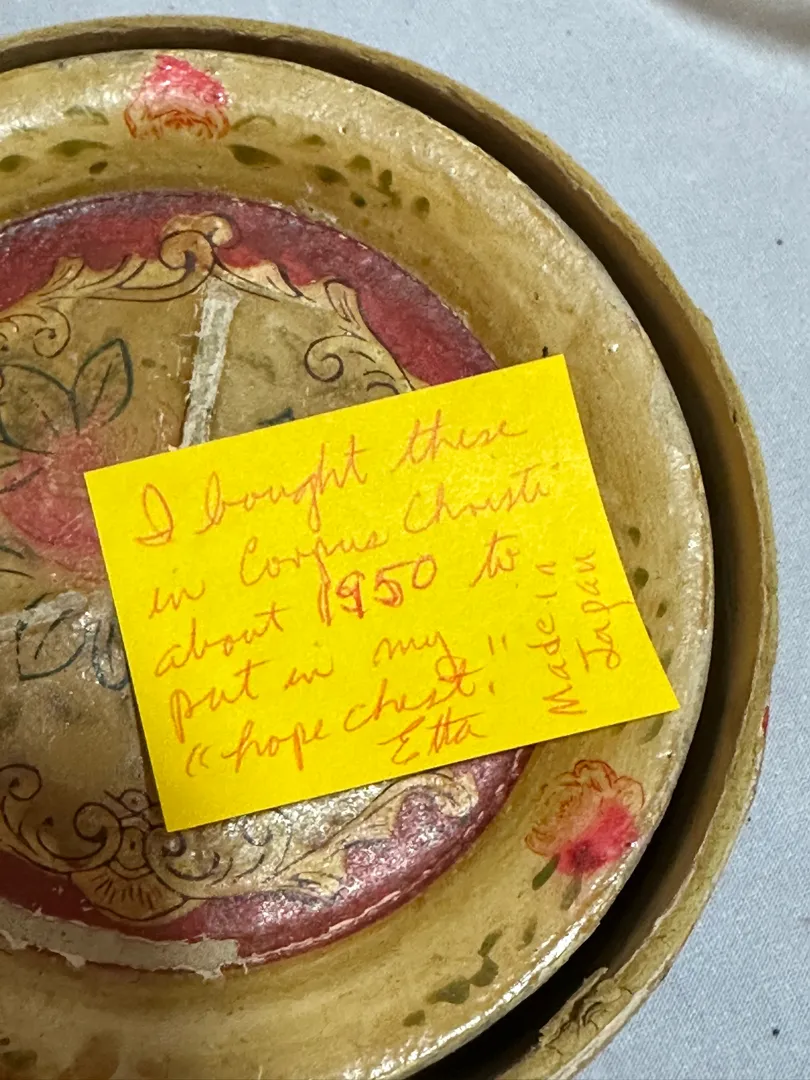 I bought these
in Corpus Christi
about 1950 to
put in my
"hope chest."
Etta
Made in
Japan